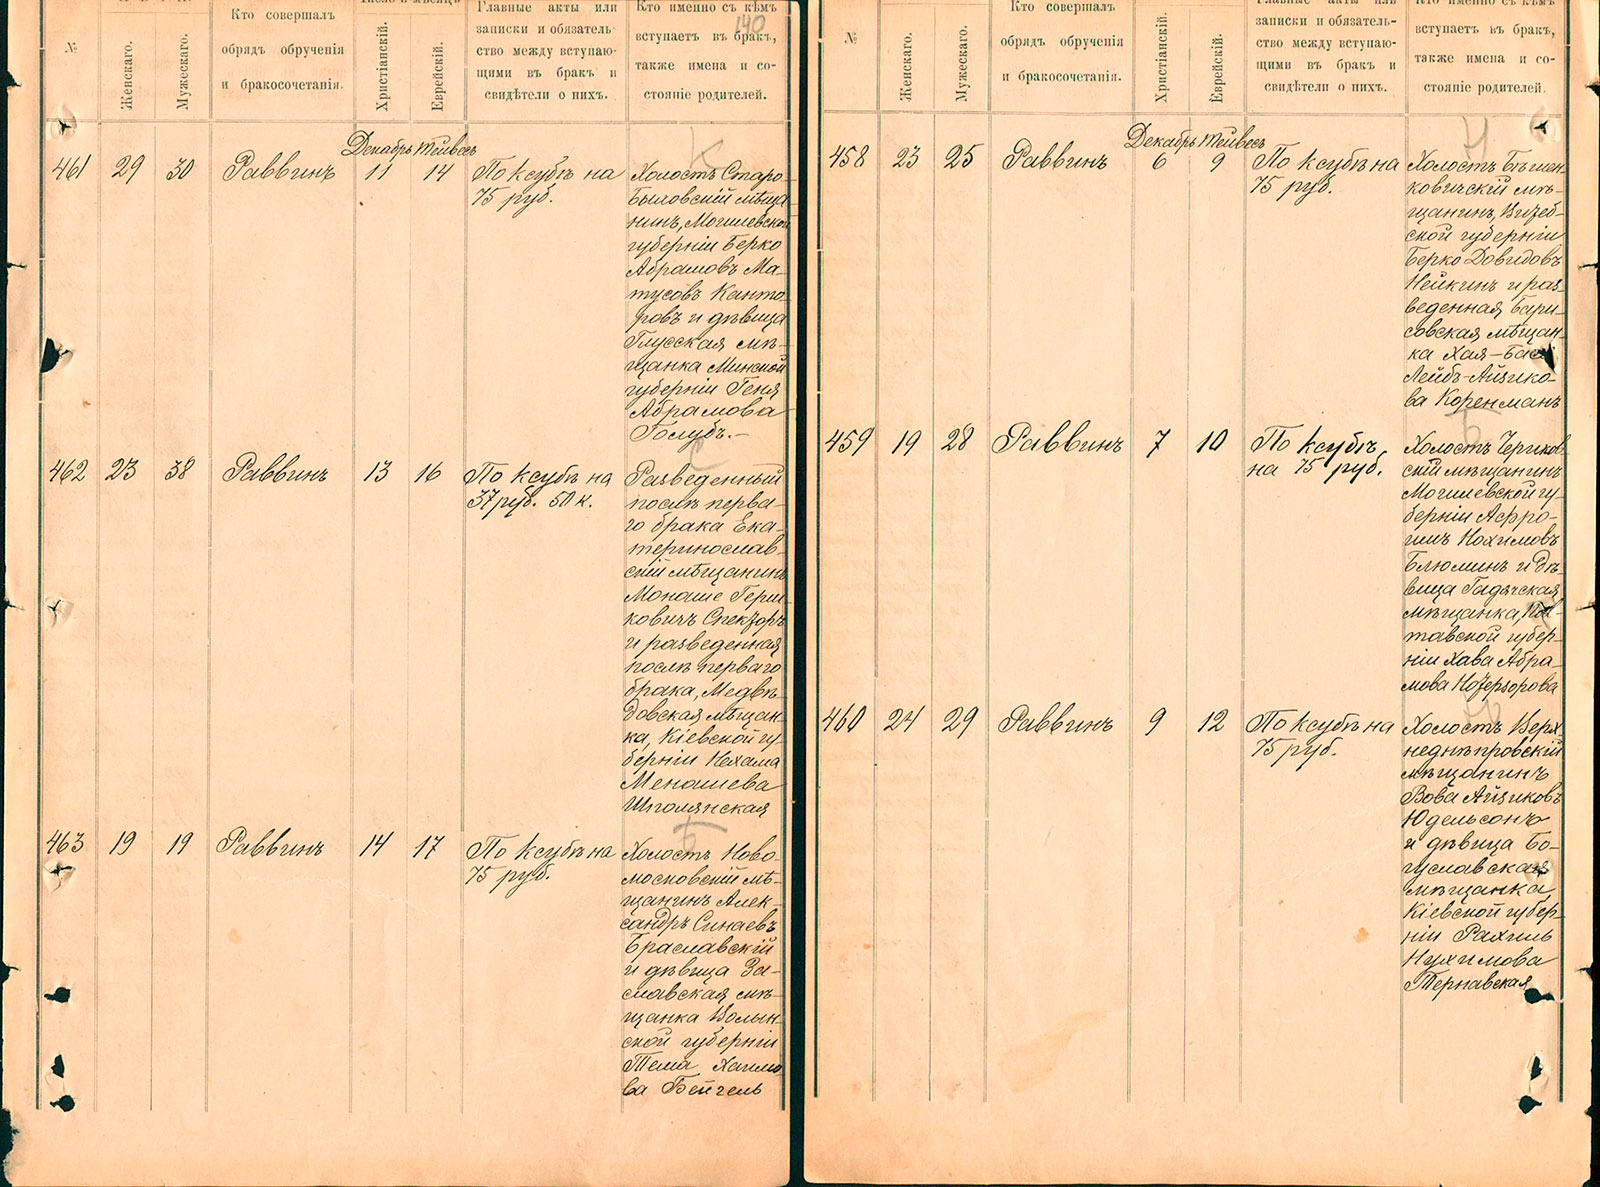 140
№
Женскаго.
Мужескаго.
Кто совершалъ
обрядъ обрученія
и бракосочетанія.
Христіанскій.
Еврейскій.
Главные акты или
записки и обязатель-
ство между вступаю-
щими въ бракъ и
свидѣтели о нихъ.
Кто именно съ кѣмъ
вступаетъ въ бракъ,
также имена и со-
стояніе родителей.
Декабрь Тейвесъ
461 29 30 Раввинъ 11 14 По ксубѣ на
75 руб.
Холостъ Старо-
Быховскій мѣща
нинъ, Могилевской
губерніи Берко
Абрамовъ Ма-
тусовъКанто-
ровъ и дѣвица
Глусская мѣ-
щанка Минской
губерніи Геня
Абрамова
Голубъ.-
462 23 38 Раввинъ 13 16 По ксубѣ на
37 руб. 50 к.
Разведенный
послѣ перва-
го брака Ека-
теринослав-
скій мѣщанинъ
Монаше Герш-
ковичъ Спекторъ
и разведенная
послѣ перваго
брака, Медвѣ-
довская мѣщан-
ка, Кіевской гу-
берніи Нехама
Менашева
Шполянская
463 19 19 Раввинъ 14 17 По ксубѣ на
75 руб.
Холостъ Ново-
московскій мѣ-
щанинъ Алек-
сандръ Синаевъ
Браславскій
и дѣвица За-
славская мѣ-
щанка Волын-
ской губерніи
Тема Хаимо-
ва Бейгель
№
Женскаго.
Мужескаго.
Кто совершалъ
обрядъ обрученія
и бракосочетанія.
Христіанскій.
Еврейскій.
Главные акты или
записки и обязатель-
ство между вступаю-
щими въ бракъ и
свидѣтели о нихъ.
Кто именно съ кѣмъ
вступаетъ въ бракъ,
также имена и со-
стояніе родителей.
Декабрь Тейвесъ
458 23 25 Раввинъ 6 9 По ксубѣ на
75 руб.
Холостъ Бѣшен-
ковичскій мѣ-
щанинъ, Витеб-
ской губерніи
Берко Довидовъ
Нейкинъ и раз
веденная Бари-
совская мѣщан-
ка Хая-Бася
Лейбъ-Айзико-
ва Коренманъ
459 19 28 Раввинъ 7 10 По ксубѣ
на 75 руб.
Холостъ Чериков
скій мѣщанинъ
Могилевской гу-
берніи Афро-
имъ Нохимовъ
Блюминъ и дѣ-
вица Гадячская
мѣщанка, Пол-
тавской губер-
ніи Хава Абра-
мова
460 24 29 Раввинъ 9 12 По ксубѣ на
75 руб.
Холостъ Верх
неднѣпровскій
мѣщанинъ
Вова Айзиковъ
Юдельсонъ
и дѣвица Бо-
гуславская
мѣщанка
Кіевской губер-
ніи Рахиль
Нухимова
Тернавская